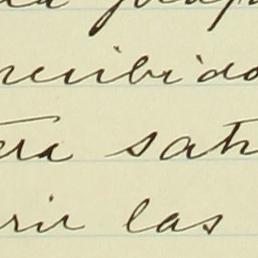 recibido
era sat
rir las